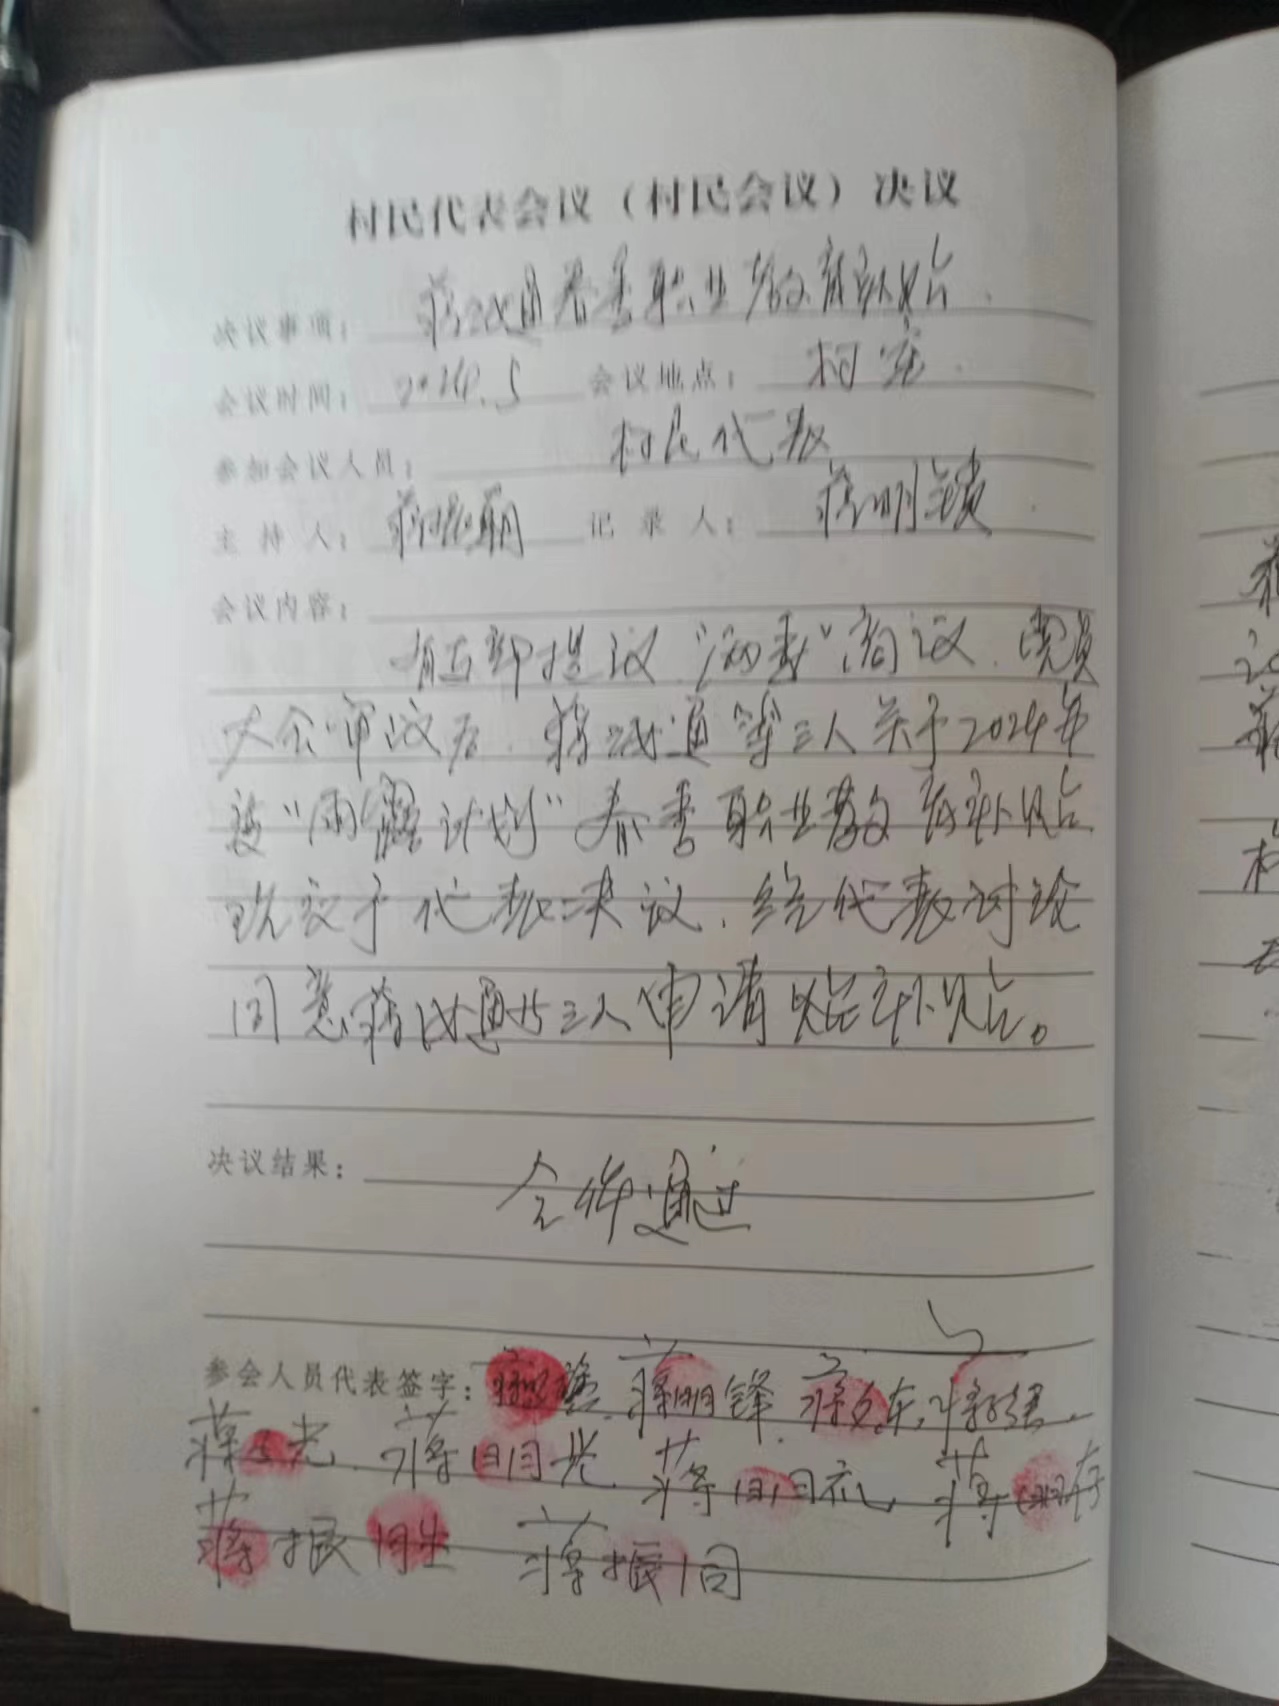 村民代表会议（村民会议）决议
决议事项： 蒋 通春季职业教育补贴
会议时间： 2024.5 会议地点： 村室
参加会议人员： 村民代表
主持人： 蒋振 记录人： 蒋明锁
会议内容：
有支部提议“两委”商议、党员
大会审议后、蒋 通等三人关于2024年
度“雨露计划”春季职业教育补贴
现交于代表决议，经代表讨论
同意蒋 通等三人申请 补贴。
决议结果： 全体通过
参会人员代表签字： 蒋 蒋明锋 蒋 东 蒋
蒋 光 蒋明光 蒋明礼 蒋明存
蒋振 蒋振同